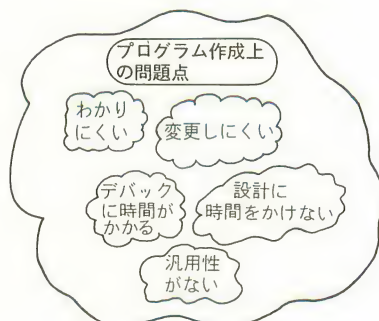 プログラム作成上
の問題点
わかり
にくい
変更しにくい
デバック
に時間が
かかる
設計に
時間をかけない
汎用性
がない